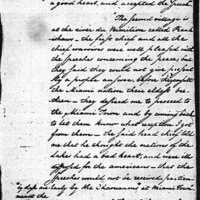 a good heart, and accepted the speech
The second village is
at the river du Vermilion called Piank
ishaws, the first chief and all the
chief warriors were well pleased with
the speeches concerning the peace; but
they said they could not give present
ly a proper answer, before they consult
the Miami nation there eldest bre
thren — they desired me to proceed to
the Miami Town and by coming back
to let them know what reception I got
from them — the said head chief told
me that he thought the nations of the
lakes had a bad heart, and were ill
disposed for the americans — that the
Speeches would not be received
particularly by the Chawanons at Miami Town